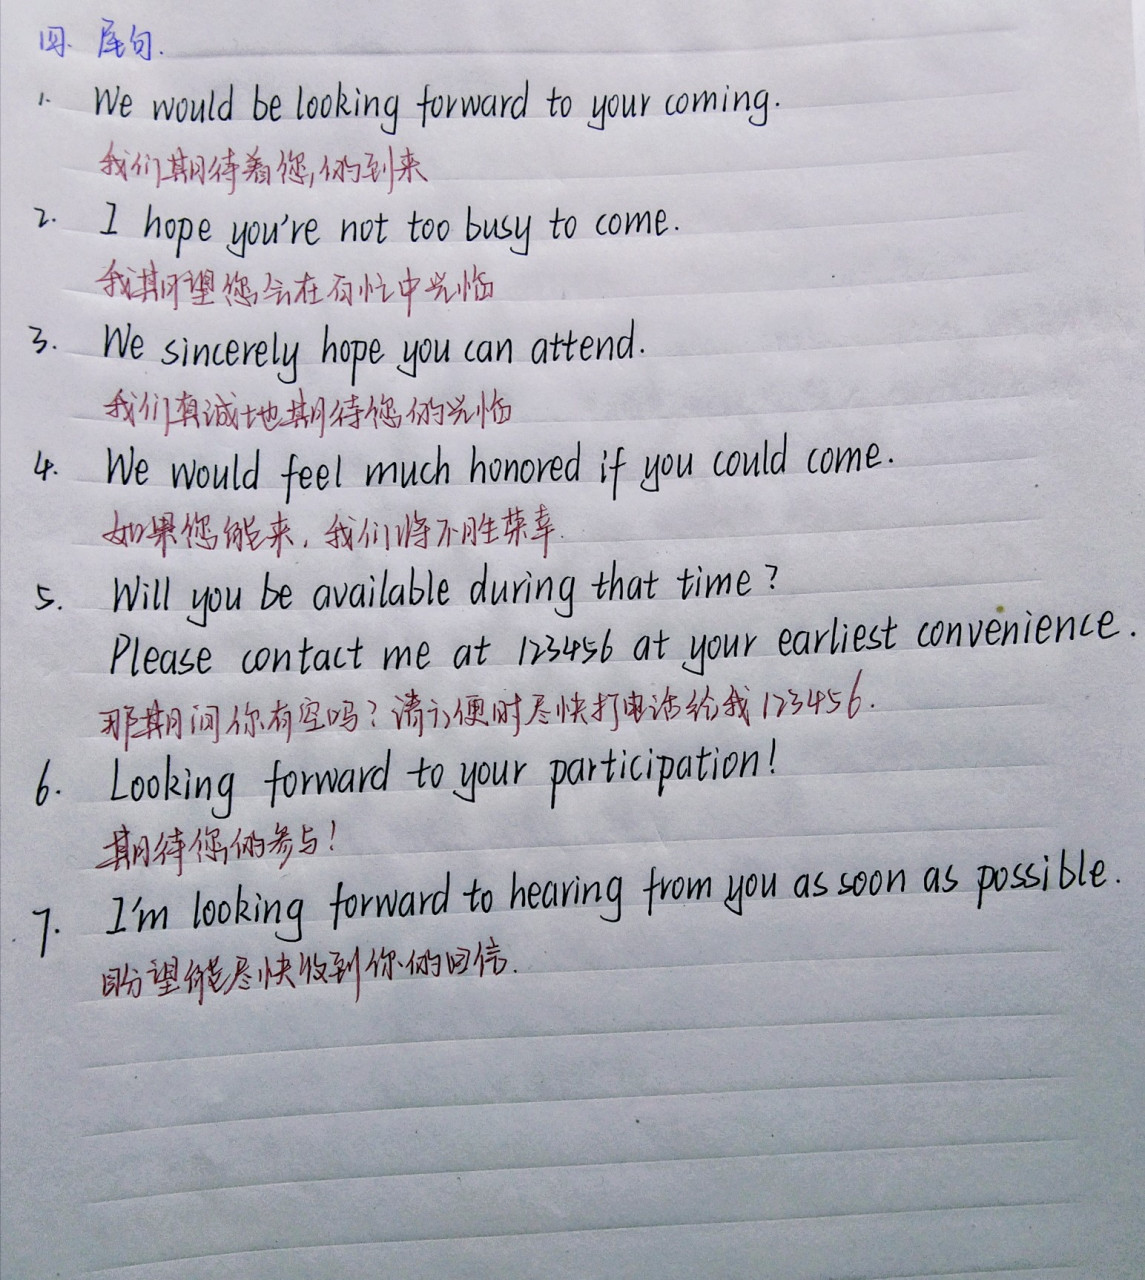 四. 尾句.
1. We would be looking forward to your coming.
我们期待着您的到来
2. I hope you're not too busy to come.
我期望您会在百忙中光临
3. We sincerely hope you can attend.
我们真诚地期待您的光临
4. We would feel much honored if you could come.
如果您能来, 我们将不胜荣幸.
5. Will you be available during that time?
Please contact me at 123456 at your earliest convenience.
那期间你有空吗? 请方便时尽快打电话给我123456.
6. Looking forward to your participation!
期待您的参与!
7. I'm looking forward to hearing from you as soon as possible.
盼望能尽快收到你的回信.